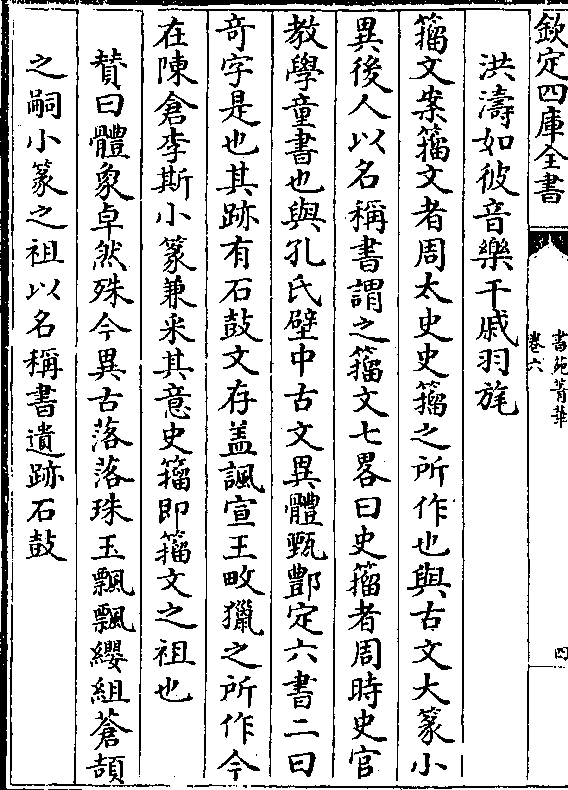 欽定四庫全書
書苑菁華
卷六
四
洪濤如彼音樂干戚羽旄
籀文案籀文者周太史史籀之所作也與古文大篆小
異後人以名稱書謂之籀文七畧曰史籀者周時史官
教學童書也與孔氏壁中古文異體甄酆定六書二曰
竒字是也其跡有石鼓文存盖諷宣王畋獵之所作今
在陳倉李斯小篆兼采其意史籀即籀文之祖也
賛曰體象卓然殊今異古落落珠玉飄飄纓組蒼頡
之嗣小篆之祖以名稱書遺跡石鼓